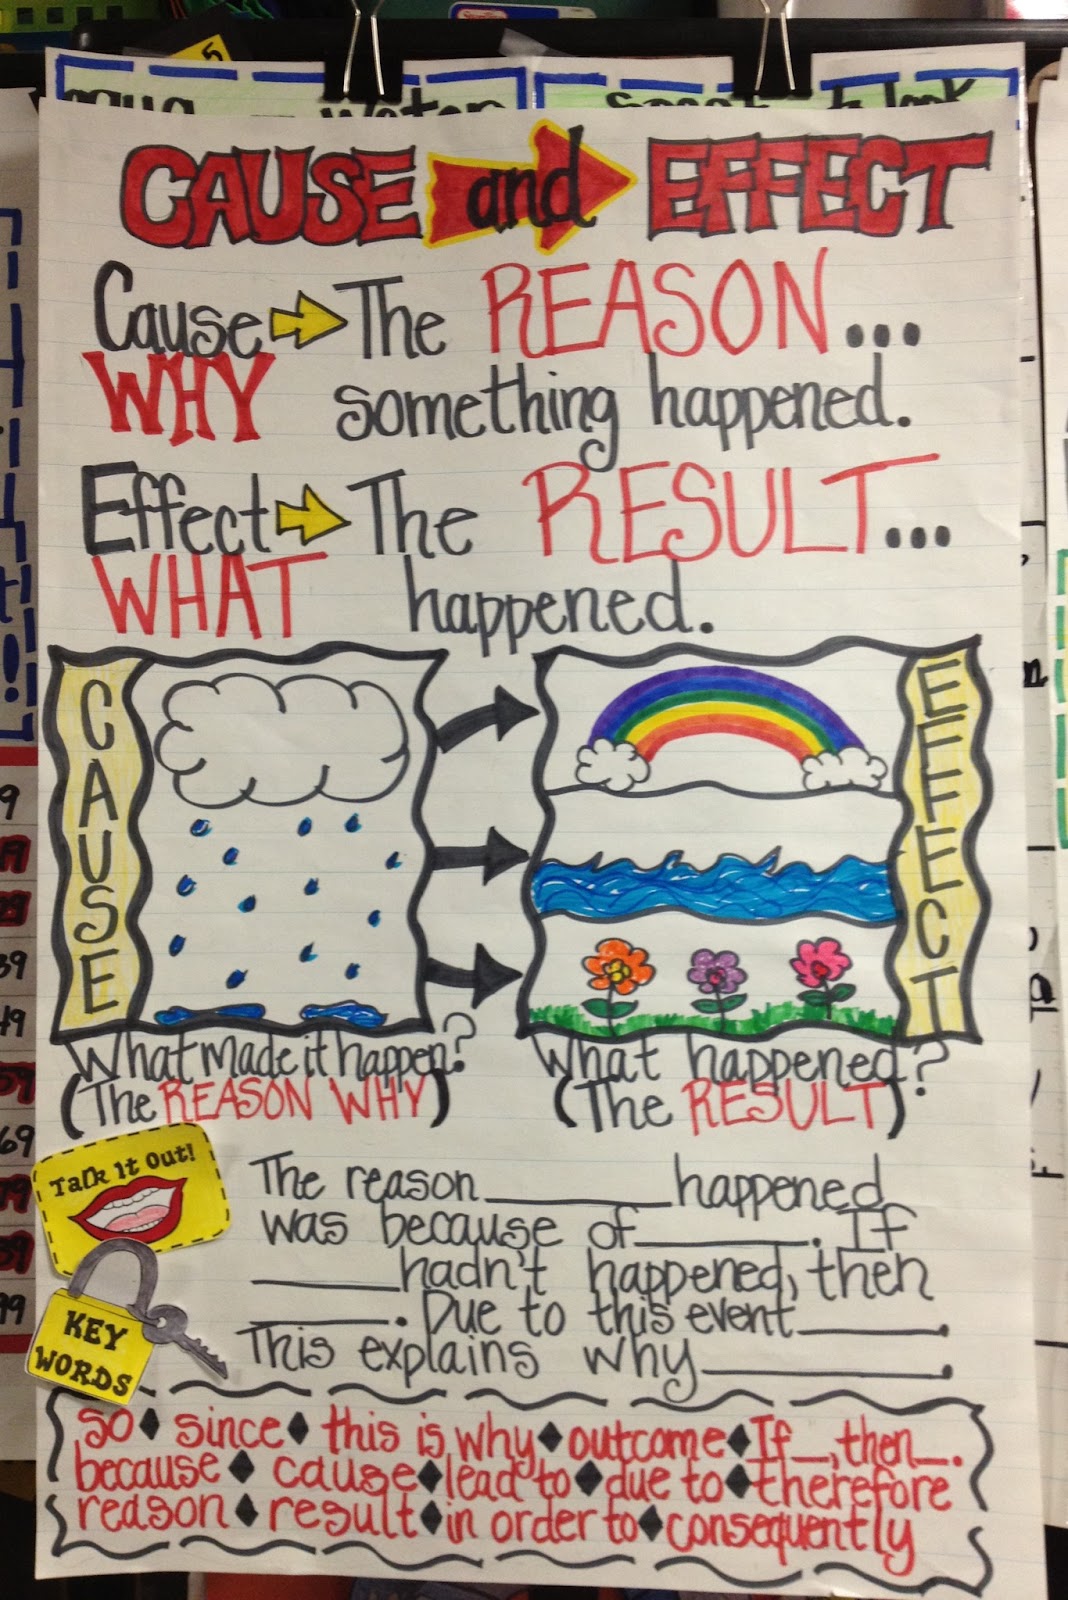 5
Water
CAUSE and EFFECT
Cause The REASON...
WHY something happened.
Effect The RESULT...
WHAT happened.
CAUSE
EFFECT
What made it happen?
(The REASON WHY)
What happened?
(The RESULT)
Talk it out!
The reason________happened
was because of________. If
______hadn't happened, then
______. Due to this event______.
This explains why__________.
KEY
WORDS
so ♦ since ♦ this is why ♦ outcome ♦ If__, then__.
because ♦ cause ♦ lead to ♦ due to ♦ therefore
reason ♦ result ♦ in order to ♦ consequently